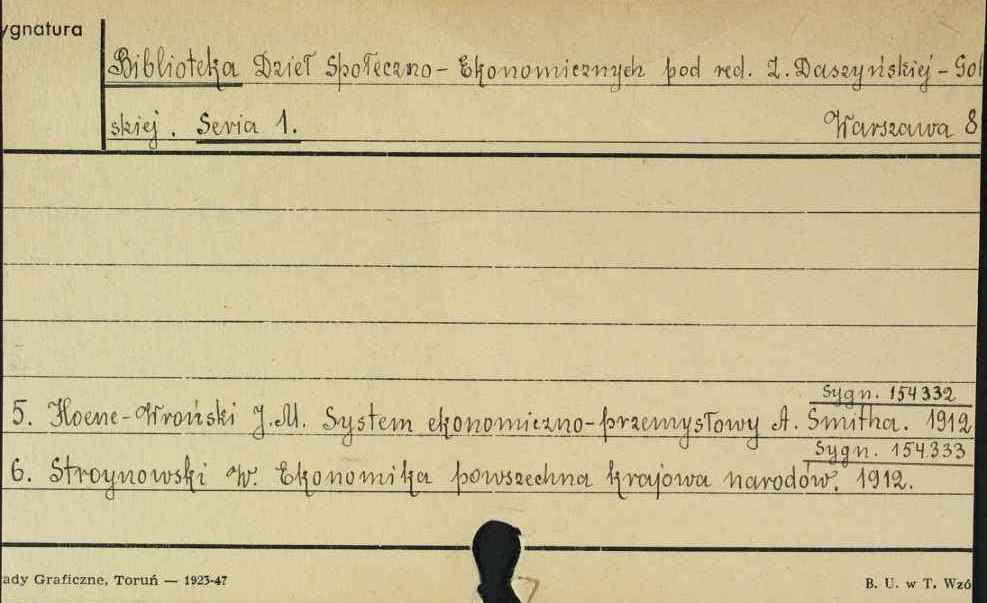 ygnatura
Biblioteka Dzieł Społeczno-Ekonomicznych pod red. Z. Daszyńskiej-Gol
skiej. Seria 1. Warszawa 8
Sygn. 154332
5. Hoene-Wroński J.M. System ekonomiczno-przemysłowy A. Smitha. 1912
Sygn. 154333
6. Stroynowski W. Ekonomika powszechna krajowa narodów. 1912.
ady Graficzne, Toruń — 1923-47
B. U. w T. Wzó